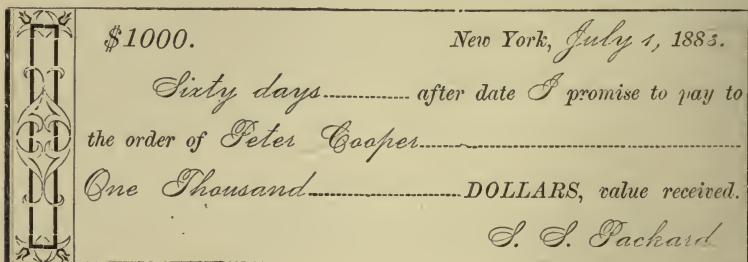 $1000. New York, July 1, 1883.
Sixty days.............. after date I promise to pay to
the order of Peter Cooper............................................................
One Thousand............................DOLLARS, value received.
S. S. Packard